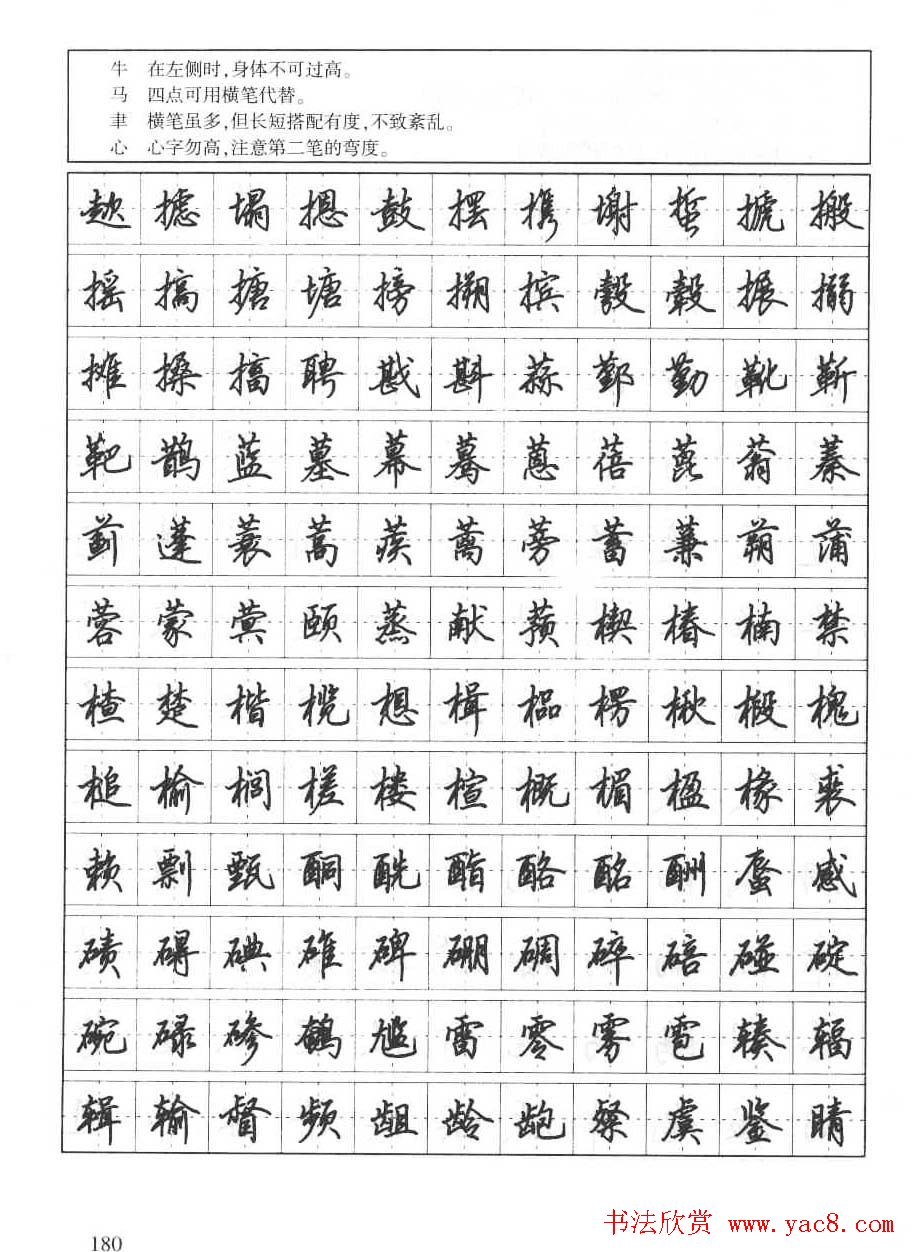 牛 在左侧时,身体不可过高。
马 四点可用横笔代替。
聿 横笔虽多,但长短搭配有度,不致紊乱。
心 心字勿高,注意第二笔的弯度。
趑 摅 塌 摁 鼓 摆 携 塮 蜇 搋 搬
摇 搞 搪 塘 搒 搠 摈 彀 毂 搌 搦
摊 搡 搞 聘 戡 斟 蒜 鄞 勤 靴 靳
靶 鹊 蓝 墓 幕 蓦 蒽 蓓 蓖 蓊 蓁
蓟 蓬 蓑 蒿 蒺 蓠 蒡 蓄 蒹 蒴 蒲
蓉 蒙 蓂 颐 蒸 献 蓣 楔 椿 楠 禁
楂 楚 楷 榄 想 楫 榀 楞 楸 椴 槐
槌 榆 榈 槎 楼 楦 概 楣 楹 椽 裘
赖 剽 甄 酮 酰 酯 酪 酩 酬 蜃 感
碛 碍 碘 碓 碑 硼 碉 碎 碚 碰 碇
碗 碌 碜 鹌 尴 雷 零 雾 雹 辏 辐
辑 输 督 频 龃 龄 龅 粲 虞 鉴 睛
180
书法欣赏 www.yac8.com